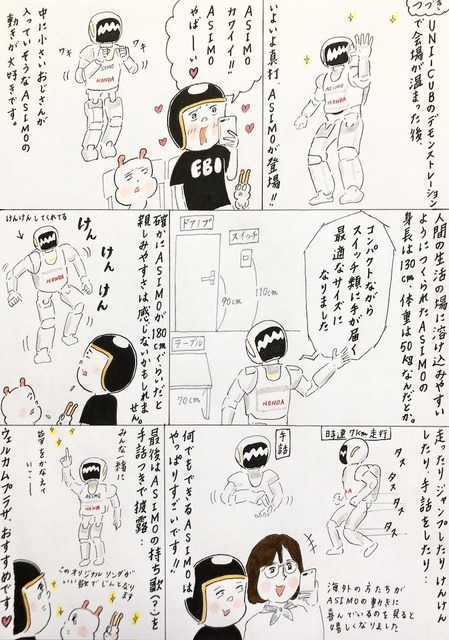 つづき
UNI-CUBのデモンストレーション
で会場が温まった後、
いよいよ真打、ASIMOが登場!!
ASIMO
HONDA
ASIMO
カワイイ!!
ASIMO
やばーい
EBI
ワキ
ワキ
ASIMO
HONDA
中に小さいおじさんが
入っていそうなASIMOの
動きが大好きです。
人間の生活の場に溶け込みやすい
ようにつくられたASIMOの
身長は130cm・体重は50kgなんだとか。
コンパクトながら
スイッチ類に手が届く
最適なサイズに
なりました
HONDA
ドアノブ
スイッチ
90cm
110cm
テーブル
70cm
けんけんしてくれてる
けん
けん
けん
HONDA
確かにASIMOが180cmぐらいだと
親しみやすさは感じないかもしれません。
走ったりジャンプしたりけんけん
したり、手話をしたり…
時速7km走行
タス
タス
タス
タス
手話
海外の方たちが
ASIMOの動きに
喜んでいるのを見ると
嬉しくなりました
何でもできるASIMOは
やっぱりすごいです!!
最後はASIMOの持ち歌(?)を
手話つきで披露…
みんな一緒に
夢をかなえて
いこー
ASIMO
HONDA
このオリジナルソングが
いい歌でじんとなります
ウェルカムプラザ、おすすめです